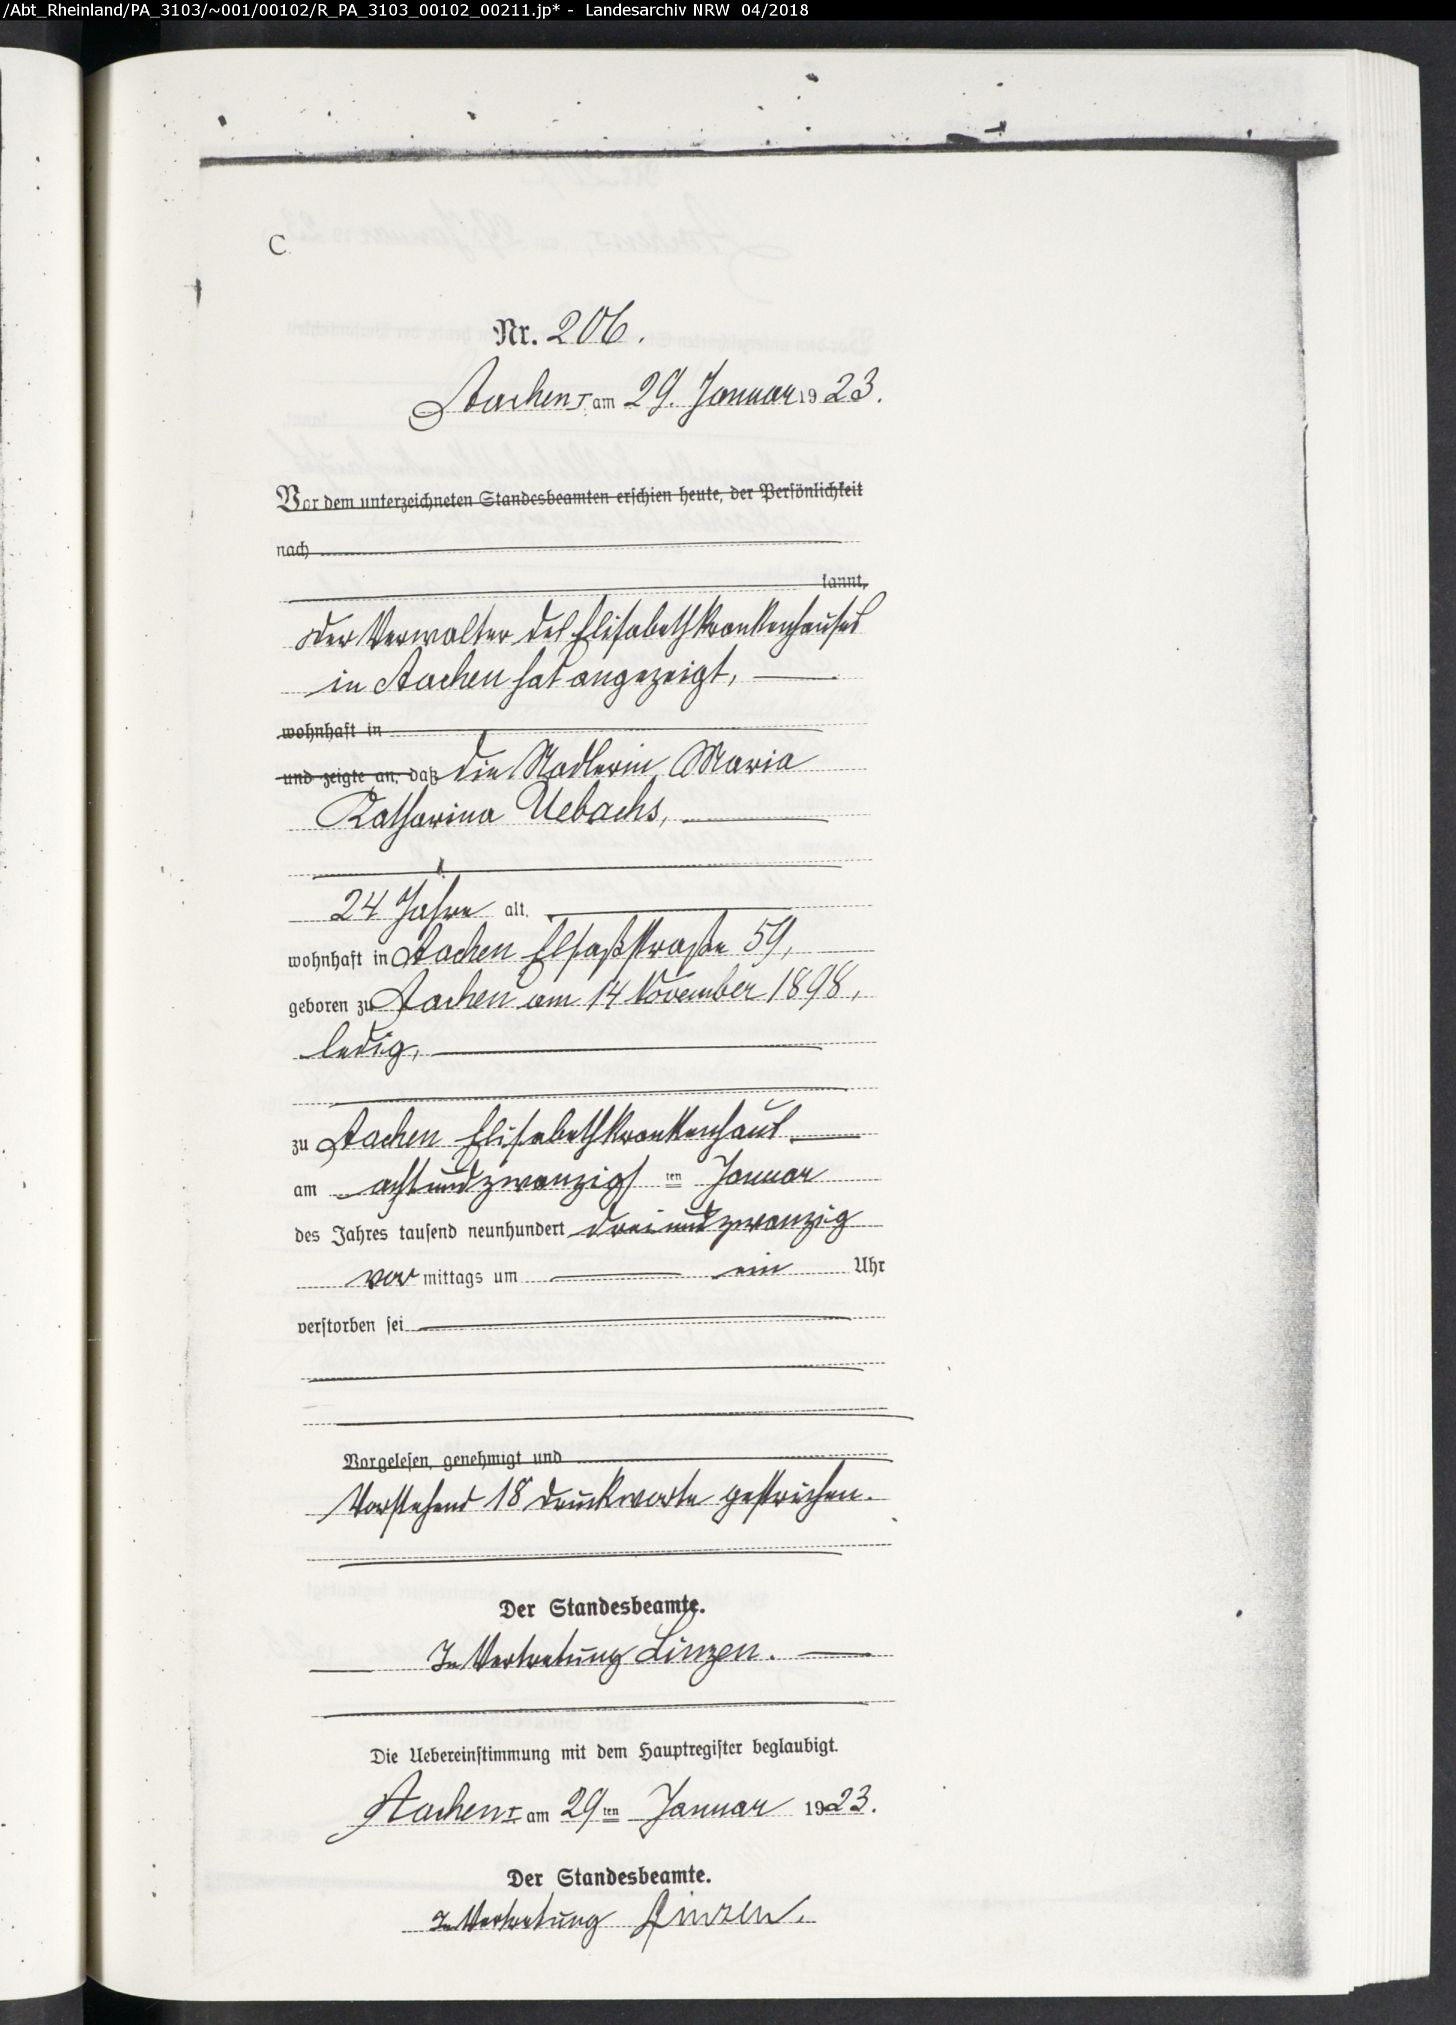 /Abt_Rheinland/PA_3103/~001/00102/R_PA_3103_00102_00211.jp* - Landesarchiv NRW 04/2018
C
Nr. 206.
Aachen I am 29. Januar 1923.
Vor dem unterzeichneten Standesbeamten erschien heute, der Persönlichkeit
nach
kannt,
Der Verwalter des Elisabethkrankenhauses
in Aachen hat angezeigt,
wohnhaft in
und zeigte an, daß die Nadlerin Maria
Katharina Uebachs,
24 Jahre alt,
wohnhaft in Aachen Elsaßstraße 59,
geboren zu Aachen am 14 November 1898,
ledig,
zu Aachen Elisabethkrankenhaus
am achtundzwanzigsten Januar
des Jahres tausend neunhundert dreiundzwanzig
vor mittags um ein Uhr
verstorben sei
Vorgelesen, genehmigt und
Vorstehend 18 Druckworte gestrichen.
Der Standesbeamte.
In Vertretung Linzen.
Die Uebereinstimmung mit dem Hauptregister beglaubigt.
Aachen I am 29ten Januar 1923.
Der Standesbeamte.
In Vertretung Linzen.